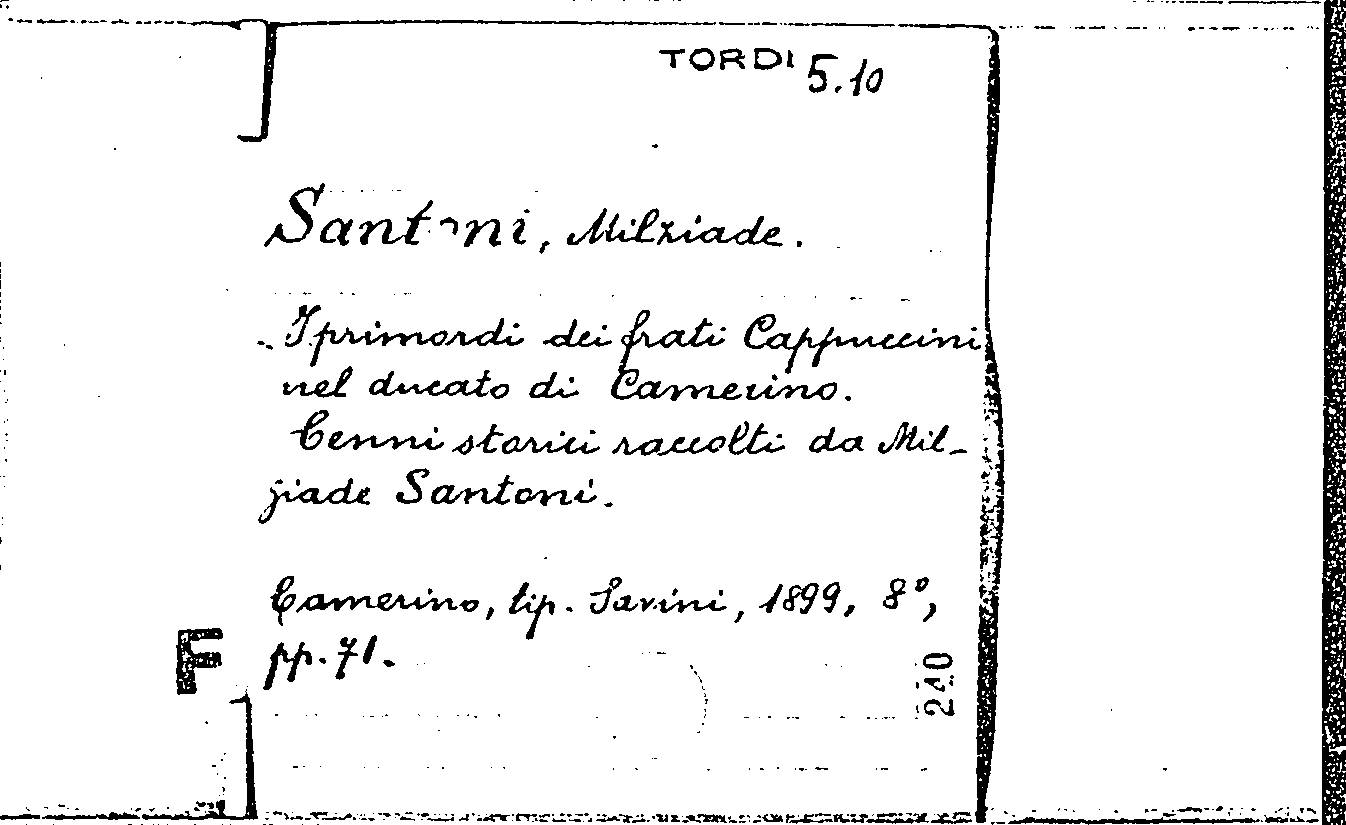 TORDI 5.10
Santoni, Milziade.
I primordi dei frati Cappuccini
nel ducato di Camerino.
Cenni storici raccolti da Mil-
ziade Santoni.
Camerino, tip. Savini, 1899, 8°,
pp. 71.
F
240